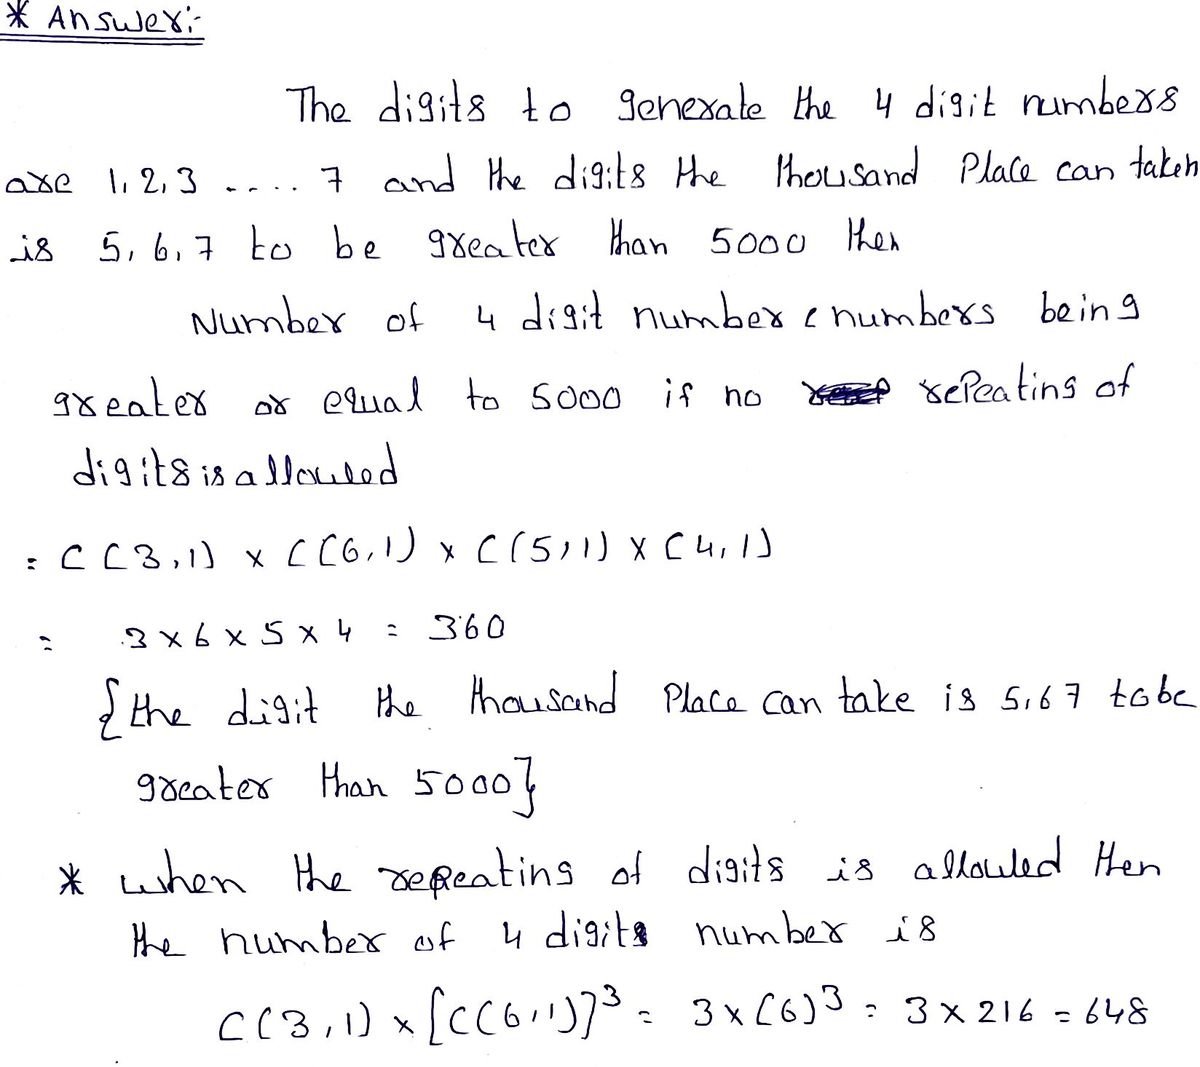 * Answer:-
The digits to generate the 4 digit numbers
are 1, 2, 3 .... 7 and the digits the thousand Place can taken
is 5, 6, 7 to be greater than 5000 then
Number of 4 digit number ( numbers being
greater or equal to 5000 if no repeating of
digits is allowed
= C(3,1) x C(6,1) x C(5,1) x C4,1)
= 3 x 6 x 5 x 4 = 360
{the digit the thousand Place can take is 5,6 7 to be
greater than 5000}
* when the repeating of digits is allowed then
the number of 4 digits number is
C(3,1) x [C(6,1)]³ = 3 x (6)³ = 3 x 216 = 648